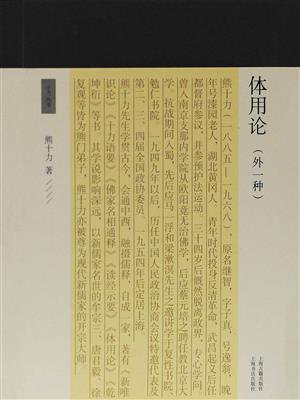 体用论
（外一种）
上海古籍出版社
上海书店出版社
熊十力（一八八五—一九六八），原名继智，字子真，号逸翁，晚
年号漆园老人，湖北黄冈人。青年时代投身反清革命，武昌起义后任
都督府参议，并参预护法运动。三十四岁后慨然脱离政界，专心学问，
曾入南京支那内学院从欧阳竟无治佛学，后应蔡元培之聘任教北京大
学。抗战期间入蜀，先后应马一浮和梁漱溟先生之邀讲学于复性书院、
勉仁书院。一九四九年以后，历任中国人民政治协商会议特邀代表及
第二、三、四届全国政协委员。一九五四年后定居上海。
熊十力先生学贯古今，会通中西，融摄儒释，自成一家，著有《新唯
识论》《十力语要》《佛家名相通释》《读经示要》《体用论》《乾
坤衍》等书。其学说影响深远，以新儒家名世的牟宗三、唐君毅、徐
复观等皆为熊门弟子，熊十力亦被尊为现代新儒家的开宗大师。
熊十力 著